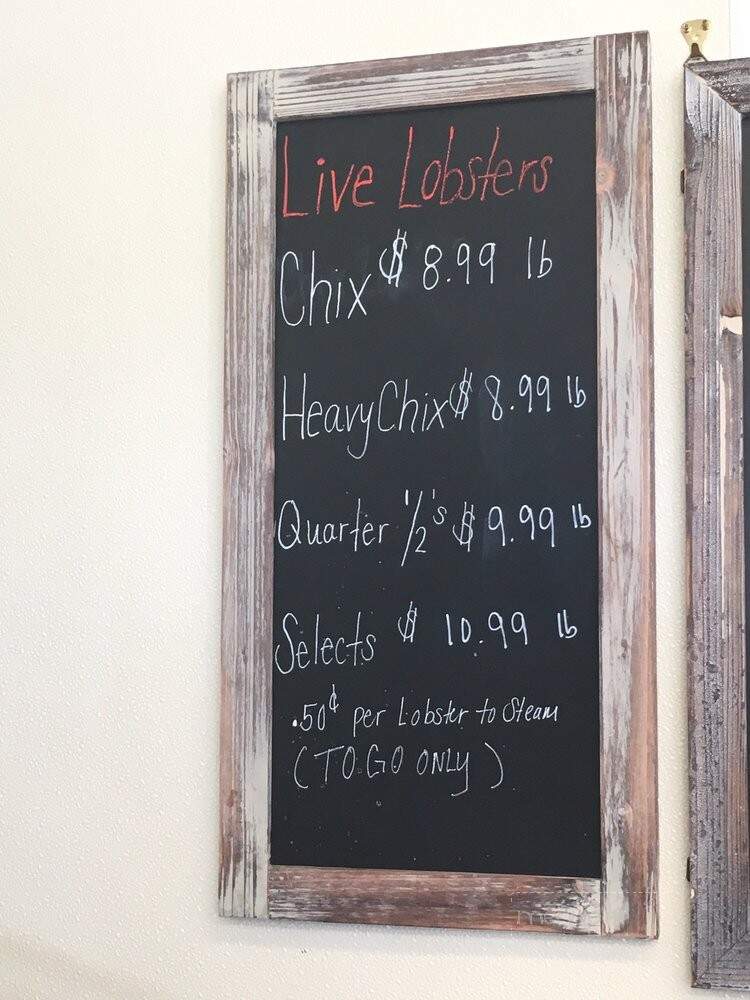 Live Lobsters
Chix $ 8.99 lb
Heavy Chix $ 8.99 lb
Quarter 1/2's $ 9.99 lb
Selects $ 10.99 lb
.50¢ per Lobster to Steam
(TO GO ONLY)